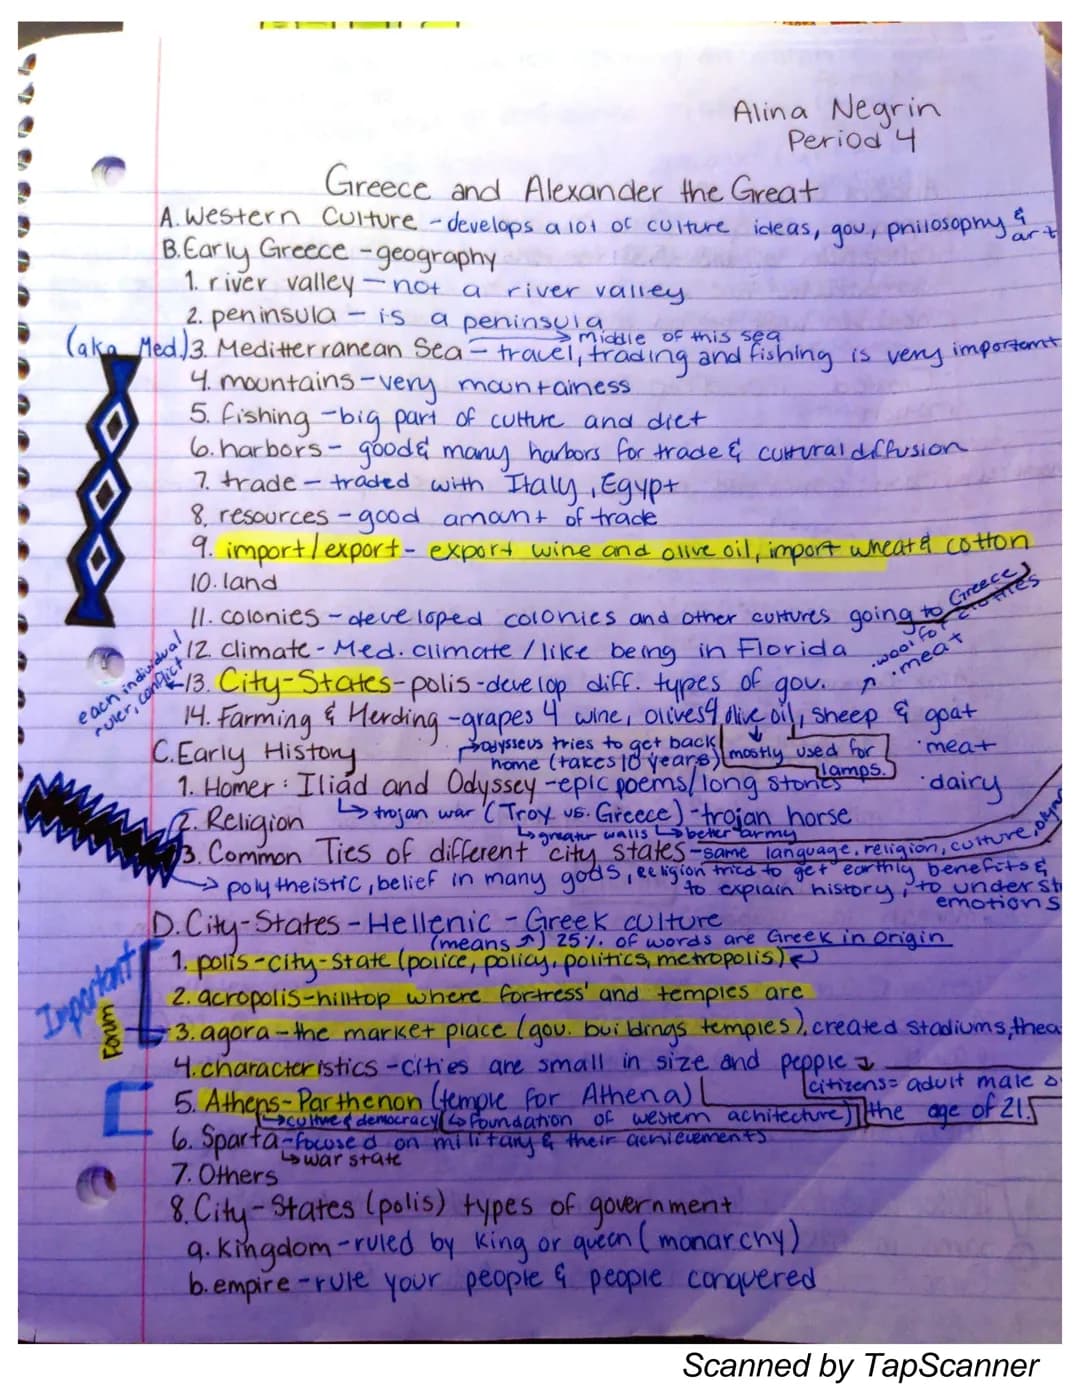 Alina Negrin
Period 4
Greece and Alexander the Great
A. Western Culture - develops a lot of culture ideas, gov, philosophy & art
B. Early Greece - geography
1. river valley - not a river valley
2. peninsula - is a peninsula
→ middle of this sea
(aka Med.) 3. Meditterranean Sea - travel, trading and fishing is very important
4. mountains - very mountainess
5. fishing - big part of culture and diet
6. harbors - good & many harbors for trade & cultural diffusion
7. trade - traded with Italy, Egypt
8. resources - good amount of trade
9. import/export - export wine and olive oil, import wheat & cotton
10. land
11. colonies - developed colonies and other cultures going to Greece)
12. climate - Med. climate / like being in Florida
• wool for clothes
• meat
each individual ruler, conflict
13. City-States - polis - develop diff. types of gov.
14. Farming & Herding - grapes 4 wine, olives 4 olive oil, sheep & goat
• meat
• dairy
mostly used for lamps.
C. Early History
→ odysseus tries to get back home (takes 10 years)
1. Homer: Iliad and Odyssey - epic poems/long stories
→ trojan war (Troy vs. Greece) - trojan horse
→ greater walls → better army
2. Religion
3. Common Ties of different city states - same language, religion, culture,
→ polytheistic, belief in many gods, religion tried to get earthly benefits &
to explain history, to
emotions
D. City-States - Hellenic - Greek culture
(means ↑) 25% of words are Greek in origin
Important
1. polis - city-state (police, policy, politics, metropolis)
2. acropolis - hilltop where fortress' and temples are
Forum
3. agora - the market place (gov. buildings temples), created stadiums,
4. characteristics - cities are small in size and people
citizens = adult male
the age of 21.
5. Athens - Parthenon (temple for Athena)
→ culture & democracy (→ foundation of western achitecture)
6. Sparta - focused on military & their achievements
→ war state
7. Others
8. City-States (polis) types of government
a. Kingdom - ruled by king or queen (monarchy)
b. empire - rule your people & people conquered
Scanned by TapScanner